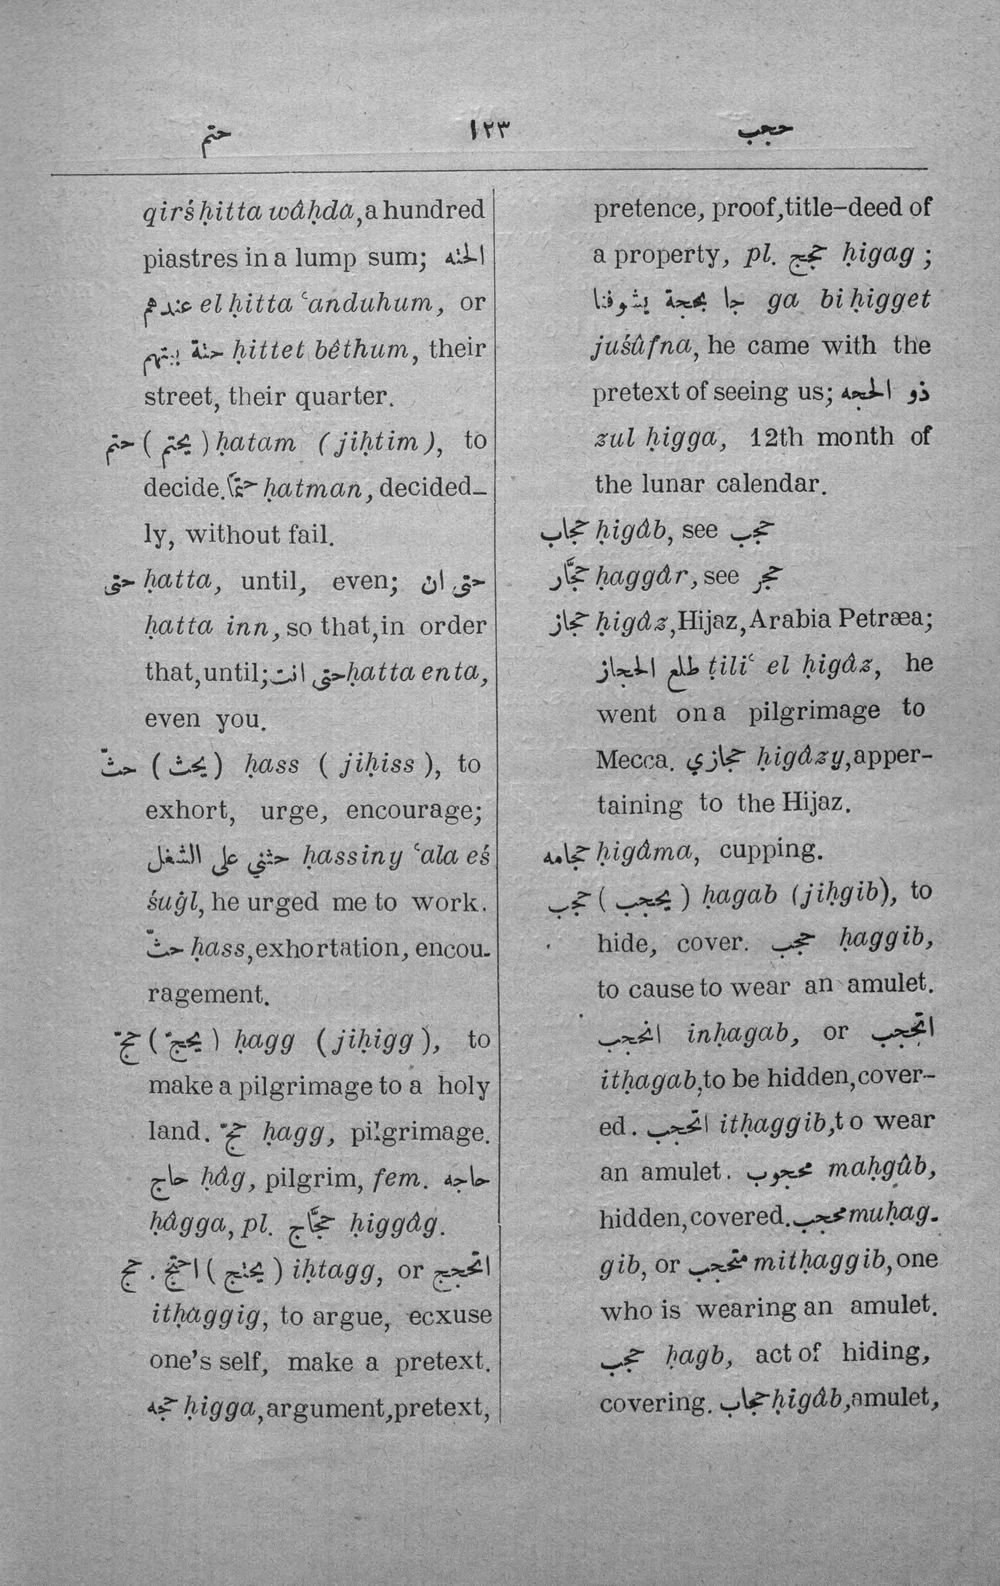 حتم ١٢٣ حجب
qirś ḥitta wâḥda, a hundred
piastres in a lump sum; الحته
عندهم el ḥitta ‘anduhum, or
حتة بيتهم ḥittet bêthum, their
street, their quarter.
حتم (يحتم) ḥatam (jiḥtim), to
decide. حتماً ḥatman, decided-
ly, without fail.
حتى ḥatta, until, even; حتى ان
ḥatta inn, so that, in order
that, until; حتى انت ḥatta enta,
even you.
حثّ (يحث) ḥass (jiḥiss), to
exhort, urge, encourage;
حثني على الشغل ḥassiny ‘ala eś
śuġl, he urged me to work.
حثّ ḥass, exhortation, encou-
ragement.
حجّ (يحجّ) ḥagg (jiḥigg), to
make a pilgrimage to a holy
land. حجّ ḥagg, pilgrimage.
حاج ḥâg, pilgrim, fem. حاجه
ḥâgga, pl. حجَّاج ḥiggâg.
حج . احتج (يحتج) iḥtagg, or اتحجج
itḥaggig, to argue, ecxuse
one's self, make a pretext.
حجه ḥigga, argument, pretext,
pretence, proof, title-deed of
a property, pl. حجج ḥigag ;
جا بحجة يشوفنا ga bi ḥigget
juśûfna, he came with the
pretext of seeing us; ذو الحجه
zul ḥigga, 12th month of
the lunar calendar.
حجاب ḥigâb, see حجب
حجَّار ḥaggâr, see حجر
حجاز ḥigâz, Hijaz, Arabia Petræa;
طلع الحجاز ṭili‘ el ḥigâz, he
went on a pilgrimage to
Mecca. حجازي ḥigâzy, apper-
taining to the Hijaz.
حجامه ḥigâma, cupping.
حجب (يحجب) ḥagab (jiḥgib), to
hide, cover. حجب ḥaggib,
to cause to wear an amulet.
انحجب inḥagab, or اتحجب
itḥagab, to be hidden, cover-
ed. اتحجب itḥaggib, to wear
an amulet. محجوب maḥgûb,
hidden, covered. محجب muḥag-
gib, or متحجب mitḥaggib, one
who is wearing an amulet.
حجب ḥagb, act of hiding,
covering. حجاب ḥigâb, amulet,